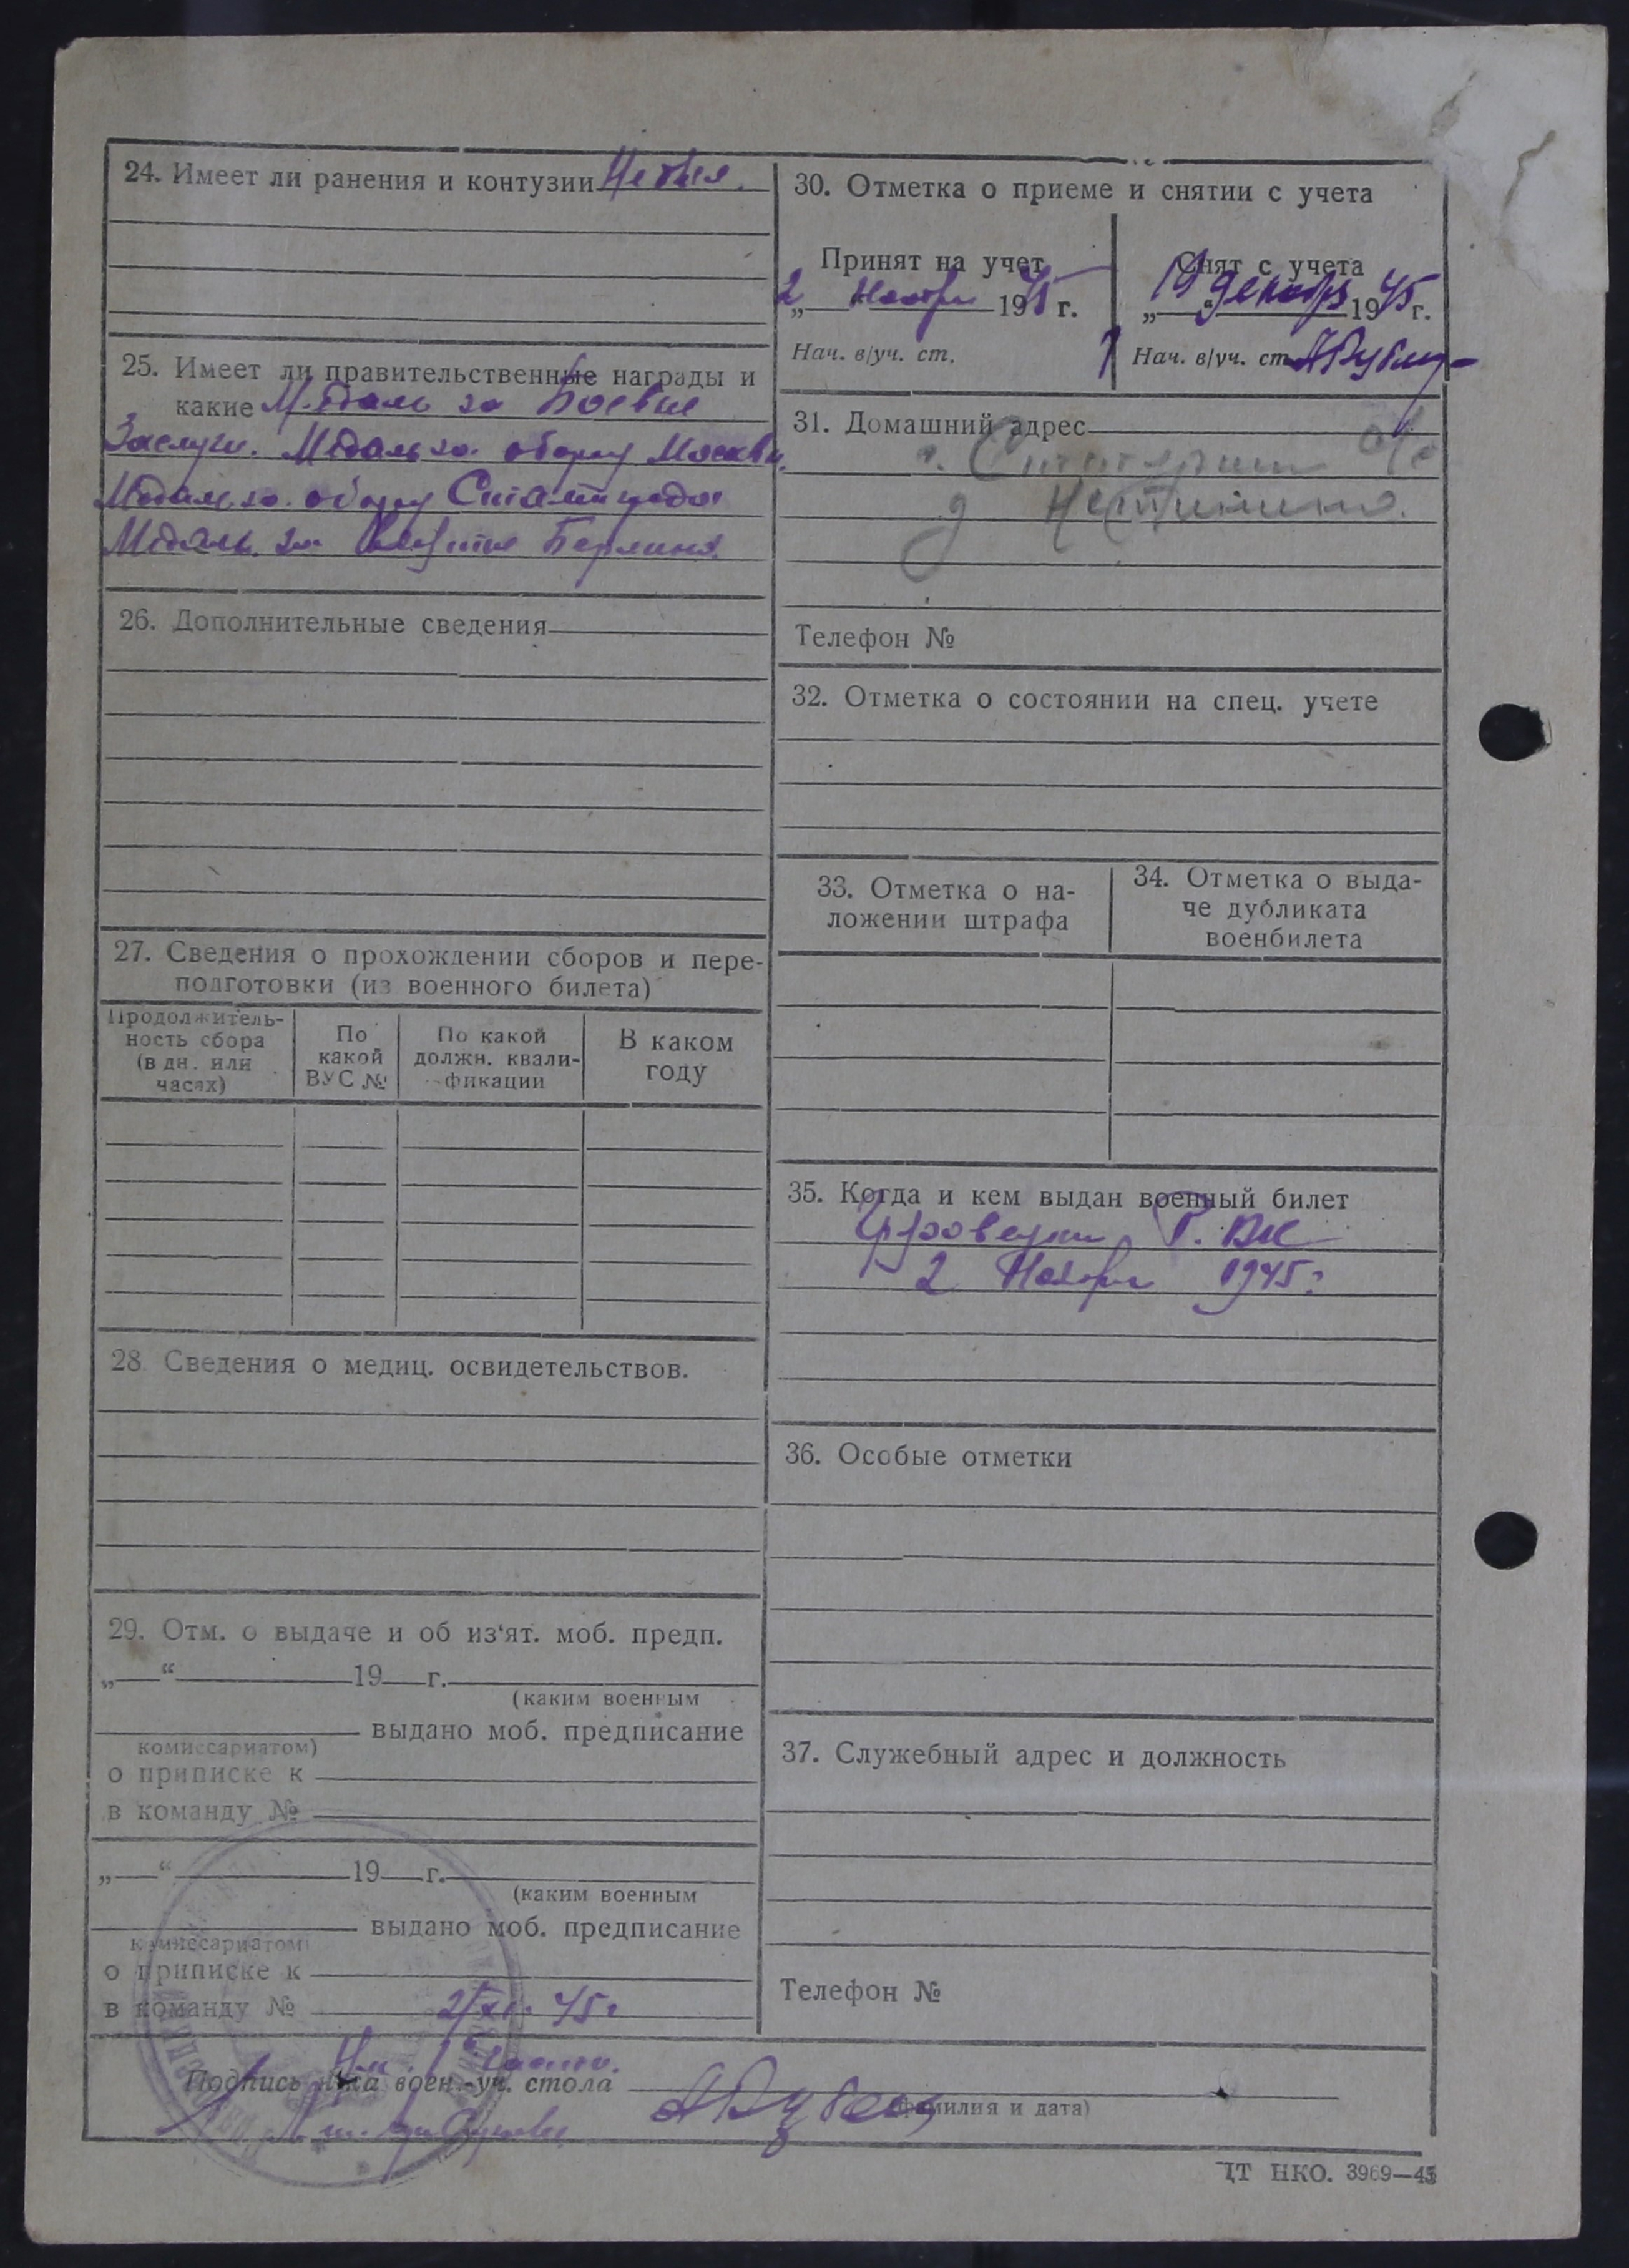 24. Имеет ли ранения и контузии
25. Имеет ли правительственные награды и
какие Медаль за Боевые
Заслуги. Медаль за оборону Москвы.
Медаль за оборону Сталинграда
Медаль за взятие Берлина.
26. Дополнительные сведения
27. Сведения о прохождении сборов и пере-
подготовки (из военного билета)
Продолжитель-
ность сбора
(в дн. или
часах)
По
какой
ВУС №
По какой
должн. квали-
фикации
В каком
году
28. Сведения о медиц. освидетельствов.
29. Отм. о выдаче и об из‘ят. моб. предп.
„—“ 19 г.
(каким военным
выдано моб. предписание
комиссариатом)
о приписке к
в команду №
„—“ 19 г.
(каким военным
выдано моб. предписание
комиссариатом)
о приписке к
в команду №
2/XI. 45г
30. Отметка о приеме и снятии с учета
Принят на учет
2 Ноября 1945 г.
Нач. в/уч. ст.
Снят с учета
19 Декабря 1945 г.
Нач. в/уч. ст.
31. Домашний адрес
Телефон №
32. Отметка о состоянии на спец. учете
33. Отметка о на-
ложении штрафа
34. Отметка о выда-
че дубликата
военбилета
35. Когда и кем выдан военный билет
Р. ВК
2 Ноября 1945г
36. Особые отметки
37. Служебный адрес и должность
Телефон №
Подпись н-ка воен.-уч. стола
(фамилия и дата)
ЦТ НКО. 3969—45